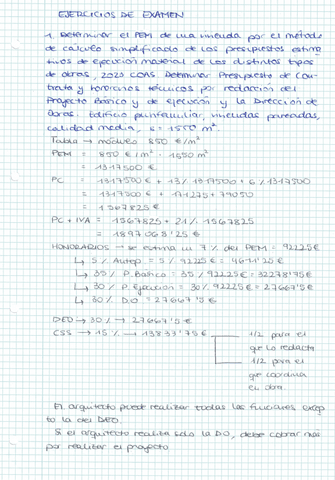 EJERCICIOS DE EXAMEN
1. Determinar el PEM de una vivienda por el método
de calculo simplificado de los presupuestos estima
tivos de ejecución material de los distintos tipos
de obras, 2020 COAS. Determinar Presupuesto de Con-
trata y honorarios técnicos por redacción del
Proyecto Básico y de ejecución y la Dirección de
Obras. Edificio plurifamiliar, viviendas pareadas,
calidad media, s = 1550 m².
Tabla → módulo 850 €/m²
PEM = 850 €/m² · 1550 m²
= 1317500 €
PC = 1317500 € + 13% 1317500 + 6% 1317500
= 1317500 € + 171275 + 79050
= 1567825 €
PC + IVA = 1567825 + 21% 1567825
= 1897068'25 €
HONORARIOS → se estima un 7% del PEM = 92225 €
↳ 5% Autop = 5% 92225 € = 4611'25 €
↳ 35% P. Básico = 35% 92225 € = 32278'75 €
↳ 30% P. Ejecución = 30% 92225 € = 27667'5 €
↳ 30% D.O = 27667'5 €
DEO → 30% → 27667'5 €
CSS → 15% → 13833'75 €
1/2 para el
que lo redacta
1/2 para el
que coordina
el obra
El arquitecto puede realizar todas las funciones excep
to la del DEO.
Si el arquitecto realiza solo la DO, debe cobrar más
por realizar el proyecto